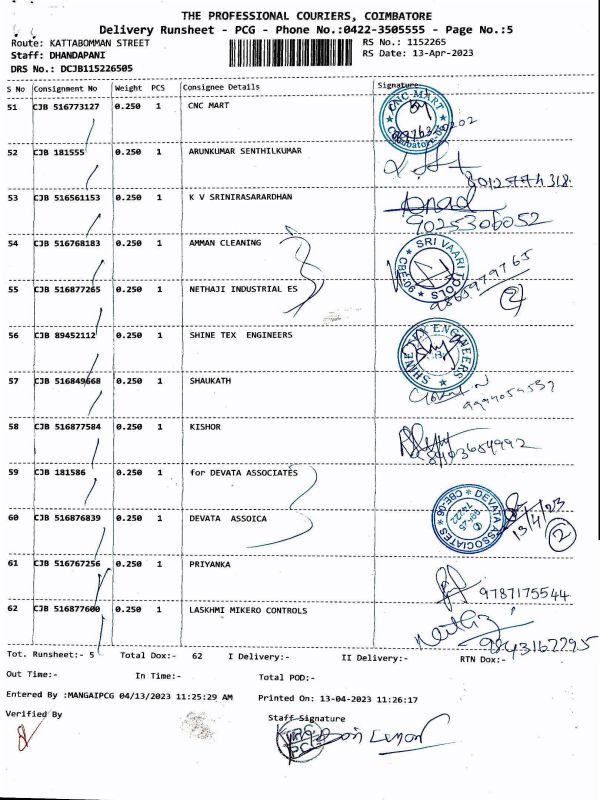 THE PROFESSIONAL COURIERS, COIMBATORE
Delivery Runsheet - PCG - Phone No.:0422-3505555 - Page No.:5
Route: KATTABOMMAN STREET RS No.: 1152265
Staff: DHANDAPANI RS Date: 13-Apr-2023
DRS No.: DCJB115226505
S No Consignment No Weight PCS Consignee Details Signature
51 CJB 516773127 0.250 1 CNC MART CNC MART
52 CJB 181555 0.250 1 ARUNKUMAR SENTHILKUMAR
53 CJB 516561153 0.250 1 K V SRINIRASARARDHAN
9025306052
54 CJB 516768183 0.250 1 AMMAN CLEANING SRI VAARI TOOLS CBE-06
55 CJB 516877265 0.250 1 NETHAJI INDUSTRIAL ES 9865979765
2
56 CJB 89452112 0.250 1 SHINE TEX ENGINEERS SHINE TEX ENGINEERS
57 CJB 516849668 0.250 1 SHAUKATH
58 CJB 516877584 0.250 1 KISHOR
59 CJB 181586 0.250 1 for DEVATA ASSOCIATES DEVATA ASSOCIATES CBE-06
13/4/23
60 CJB 516876839 0.250 1 DEVATA ASSOICA 2
61 CJB 516767256 0.250 1 PRIYANKA
9787175544
62 CJB 516877600 0.250 1 LASKHMI MIKERO CONTROLS
9843162295
Tot. Runsheet:- 5 Total Dox:- 62 I Delivery:- II Delivery:- RTN Dox:-
Out Time:- In Time:- Total POD:-
Entered By :MANGAIPCG 04/13/2023 11:25:29 AM Printed On: 13-04-2023 11:26:17
Verified By Staff Signature